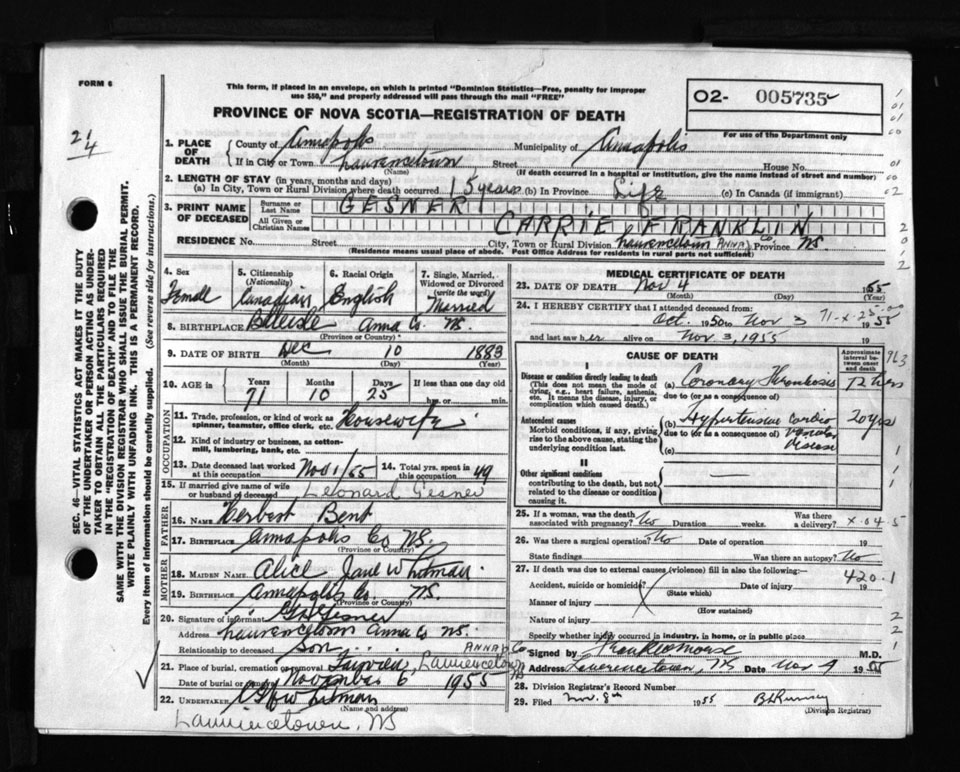 FORM 6
This form, if placed in an envelope, on which is printed "Dominion Statistics—Free, penalty for improper
use $50," and properly addressed will pass through the mail "FREE"
PROVINCE OF NOVA SCOTIA—REGISTRATION OF DEATH
02- 005735
For use of the Department only
2 1/4
1. PLACE OF DEATH
County of Annapolis Municipality of Annapolis
If in City or Town Lawrencetown Street House No.
(Name) (If death occurred in a hospital or institution, give the name instead of street and number)
2. LENGTH OF STAY (in years, months and days)
(a) In City, Town or Rural Division where death occurred 15 years (b) In Province Life (c) In Canada (if immigrant)
3. PRINT NAME OF DECEASED
Surname or Last Name GESNER
All Given or Christian Names CARRIE FRANKLIN
RESIDENCE No. Street City, Town or Rural Division Lawrencetown ANNAP Co Province N.S.
(Residence means usual place of abode. Post Office Address for residents in rural parts not sufficient)
SEC. 46—VITAL STATISTICS ACT MAKES IT THE DUTY
OF THE UNDERTAKER OR PERSON ACTING AS UNDER-
TAKER TO OBTAIN ALL THE PARTICULARS REQUIRED
IN THE "REGISTRATION OF DEATH" AND TO FILE THE
SAME WITH THE DIVISION REGISTRAR WHO SHALL ISSUE THE BURIAL PERMIT.
WRITE PLAINLY WITH UNFADING INK. THIS IS A PERMANENT RECORD.
Every item of information should be carefully supplied. (See reverse side for instructions.)
4. Sex Female
5. Citizenship (Nationality) Canadian
6. Racial Origin English
7. Single, Married, Widowed or Divorced (write the word) Married
8. BIRTHPLACE Belleisle Anna Co. N.S.
(Province or Country)
9. DATE OF BIRTH Dec 10 1883
(Month) (Day) (Year)
10. AGE in Years Months Days If less than one day old
71 10 25 hrs. or min.
OCCUPATION
11. Trade, profession, or kind of work as
spinner, teamster, office clerk, etc. Housewife
12. Kind of industry or business, as cotton-
mill, lumbering, bank, etc.
13. Date deceased last worked
at this occupation Nov 1/55
14. Total yrs. spent in
this occupation 49
15. If married give name of wife
or husband of deceased Leonard Gesner
FATHER
16. NAME Herbert Bent
17. BIRTHPLACE Annapolis Co N.S.
(Province or Country)
MOTHER
18. MAIDEN NAME Alice Jane Whitman
19. BIRTHPLACE Annapolis Co. N.S.
(Province or Country)
20. Signature of informant Gesner
Address Lawrencetown Anna Co N.S.
Relationship to deceased Son
21. Place of burial, cremation or removal Fairview, Lawrencetown ANNAP Co NS
Date of burial or November 6 1955
22. UNDERTAKER Whitman
(Name and address)
Lawrencetown, NS
MEDICAL CERTIFICATE OF DEATH
23. DATE OF DEATH Nov 4 1955
(Month) (Day) (Year)
24. I HEREBY CERTIFY that I attended deceased from:
71-X-25
Oct. 1950 to Nov 3 1955
and last saw her alive on Nov. 3, 1955
CAUSE OF DEATH
Approximate interval between onset and death
963
I
Disease or condition directly leading to death
(This does not mean the mode of
dying, e.g., heart failure, asthenia,
etc. It means the disease, injury, or
complication which caused death.)
(a) Coronary Thrombosis 12 hrs
due to (or as a consequence of)
Antecedent causes
Morbid conditions, if any, giving
rise to the above cause, stating the
underlying condition last.
(b) Hypertensive Cardio 20 yrs
due to (or as a consequence of) Vascular
Disease
(c)
II
Other significant conditions
contributing to the death, but not
related to the disease or condition
causing it.
25. If a woman, was the death
associated with pregnancy? No Duration weeks. Was there a delivery?
X-04-5
26. Was there a surgical operation? No Date of operation 19
State findings Was there an autopsy? No
27. If death was due to external causes (violence) fill in also the following:
420.1
Accident, suicide or homicide? Date of injury 19
(State which)
Manner of injury
(How sustained)
Nature of injury
Specify whether injury occurred in industry, in home, or in public place
Signed by Frank Morse M.D.
Address Lawrencetown, NS Date Nov 4 1955
28. Division Registrar's Record Number
29. Filed Nov. 8th 1955
(Division Registrar)